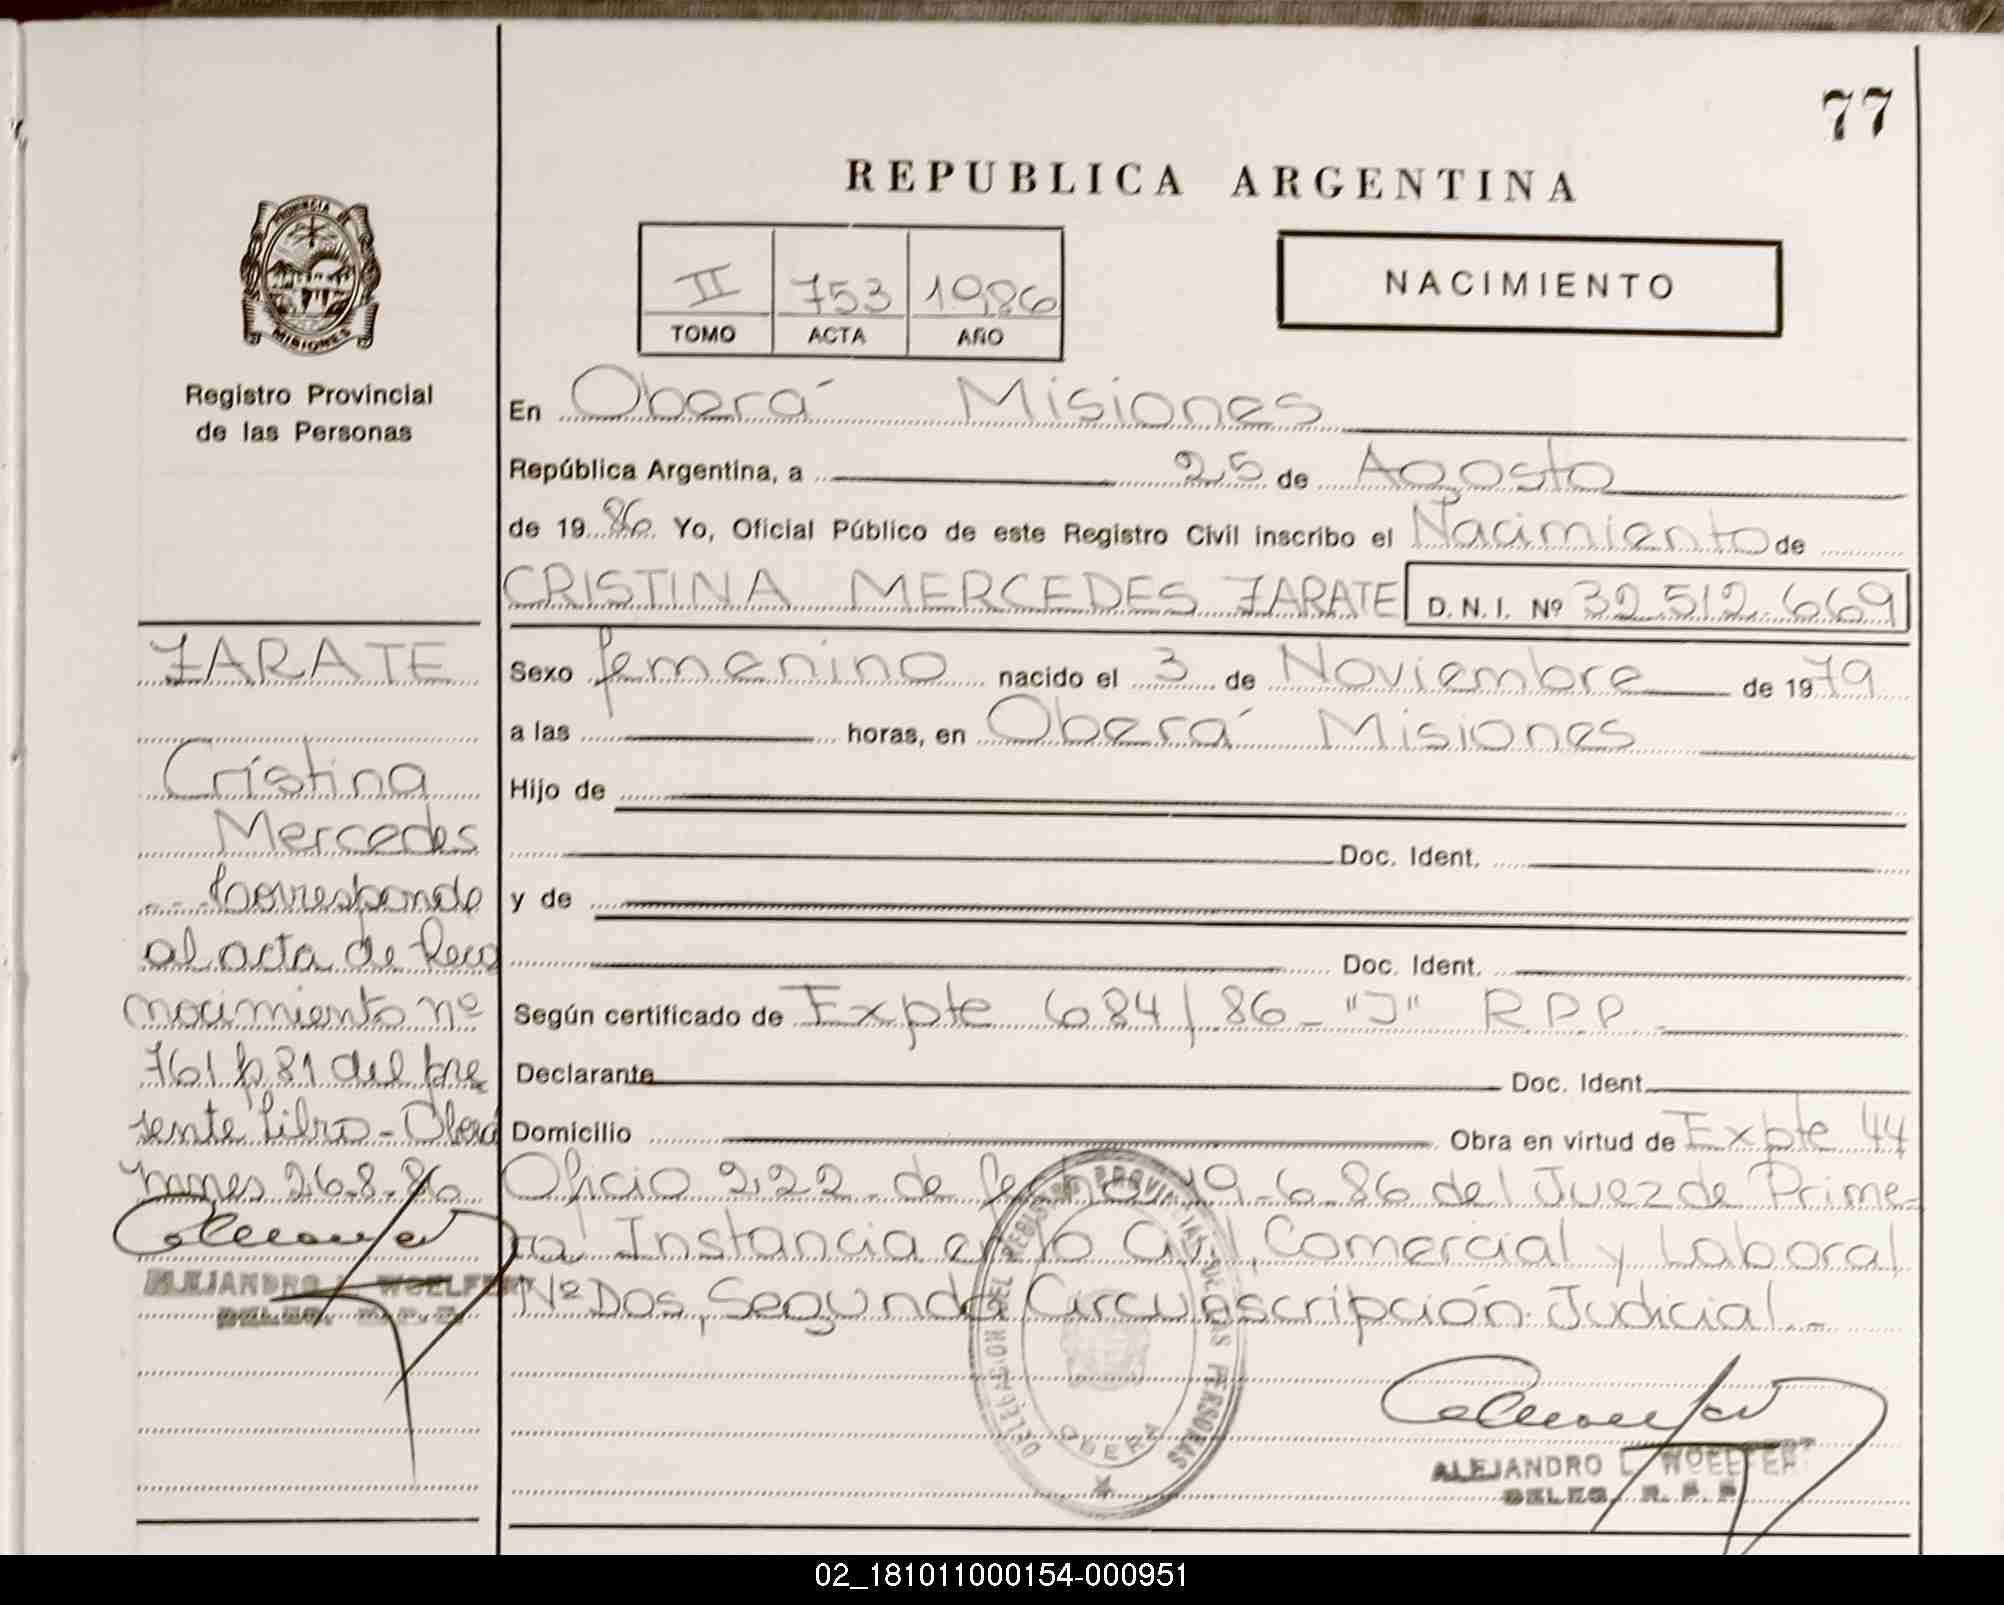 77
REPUBLICA ARGENTINA
II 753 1986
TOMO ACTA AÑO
NACIMIENTO
PROVINCIA DE
MISIONES
Registro Provincial
de las Personas
En Oberá Misiones
República Argentina, a 25 de Agosto
de 1986 Yo, Oficial Público de este Registro Civil inscribo el Nacimiento de
CRISTINA MERCEDES ZARATE D.N.I. Nº 32.512.669
Sexo femenino nacido el 3 de Noviembre de 1979
a las horas, en Oberá Misiones
Hijo de
Doc. Ident.
y de
Doc. Ident.
Según certificado de Expte 684/86 - "J" R.P.P
Declarante Doc. Ident.
Domicilio Obra en virtud de Expte 44
Oficio 222 de fecha 19-6-86 del Juez de Prime-
ra Instancia en lo Civil, Comercial y Laboral
Nº Dos, Segunda Circunscripción Judicial.-
DELEGACION DEL REGISTRO PROVINCIAL DE LAS PERSONAS
OBERA
ALEJANDRO L. WOELFERT
DELEG. R. P. P.
ZARATE
Cristina
Mercedes
Corresponde
al acta de Reco
nocimiento nº
761 fº 81 del pre
sente libro - Oberá
Mnes 26-8-86
ALEJANDRO WOELFERT
DELEG.
02_181011000154-000951